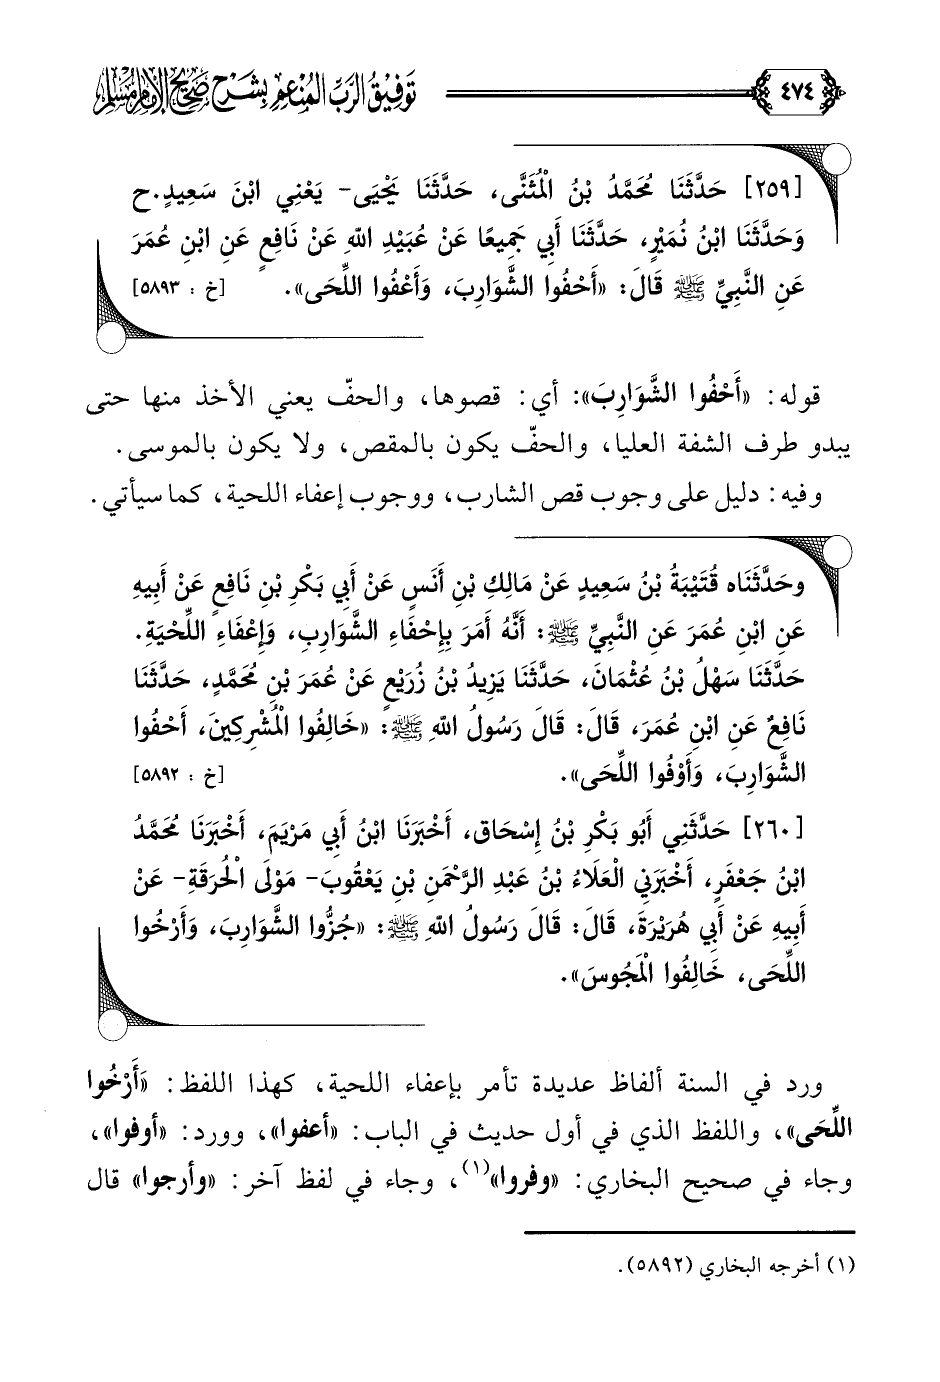 ٤٧٤ توفيق الرب المنعم بشرح صحيح الإمام مسلم
[٢٥٩] حَدَّثَنَا مُحَمَّدُ بْنُ الْمُثَنَّى، حَدَّثَنَا يَحْيَى- يَعْنِي ابْنَ سَعِيدٍ.ح
وَحَدَّثَنَا ابْنُ نُمَيْرٍ، حَدَّثَنَا أَبِي جَمِيعًا عَنْ عُبَيْدِ اللهِ عَنْ نَافِعٍ عَنِ ابْنِ عُمَرَ
عَنِ النَّبِيِّ ﷺ قَالَ: «أَحْفُوا الشَّوَارِبَ، وَأَعْفُوا اللِّحَى». [خ : ٥٨٩٣]
قوله: «أَحْفُوا الشَّوَارِبَ»: أي: قصوها، والحفّ يعني الأخذ منها حتى
يبدو طرف الشفة العليا، والحفّ يكون بالمقص، ولا يكون بالموسى.
وفيه: دليل على وجوب قص الشارب، ووجوب إعفاء اللحية، كما سيأتي.
وحَدَّثَنَاه قُتَيْبَةُ بْنُ سَعِيدٍ عَنْ مَالِكِ بْنِ أَنَسٍ عَنْ أَبِي بَكْرِ بْنِ نَافِعٍ عَنْ أَبِيهِ
عَنِ ابْنِ عُمَرَ عَنِ النَّبِيِّ ﷺ: أَنَّهُ أَمَرَ بِإِحْفَاءِ الشَّوَارِبِ، وَإِعْفَاءِ اللِّحْيَةِ.
حَدَّثَنَا سَهْلُ بْنُ عُثْمَانَ، حَدَّثَنَا يَزِيدُ بْنُ زُرَيْعٍ عَنْ عُمَرَ بْنِ مُحَمَّدٍ، حَدَّثَنَا
نَافِعٌ عَنِ ابْنِ عُمَرَ، قَالَ: قَالَ رَسُولُ اللهِ ﷺ: «خَالِفُوا الْمُشْرِكِينَ، أَحْفُوا
الشَّوَارِبَ، وَأَوْفُوا اللِّحَى». [خ : ٥٨٩٢]
[٢٦٠] حَدَّثَنِي أَبُو بَكْرِ بْنُ إِسْحَاق، أَخْبَرَنَا ابْنُ أَبِي مَرْيَمَ، أَخْبَرَنَا مُحَمَّدُ
ابْنُ جَعْفَرٍ، أَخْبَرَنِي الْعَلَاءُ بْنُ عَبْدِ الرَّحْمَنِ بْنِ يَعْقُوبَ- مَوْلَى الْحُرَقَةِ- عَنْ
أَبِيهِ عَنْ أَبِي هُرَيْرَةَ، قَالَ: قَالَ رَسُولُ اللهِ ﷺ: «جُزُّوا الشَّوَارِبَ، وَأَرْخُوا
اللِّحَى، خَالِفُوا الْمَجُوسَ».
ورد في السنة ألفاظ عديدة تأمر بإعفاء اللحية، كهذا اللفظ: «أَرْخُوا
اللِّحَى»، واللفظ الذي في أول حديث في الباب: «أعفوا»، وورد: «أوفوا»،
وجاء في صحيح البخاري: «وفروا»(١)، وجاء في لفظ آخر: «وأرجوا» قال
(١) أخرجه البخاري (٥٨٩٢).